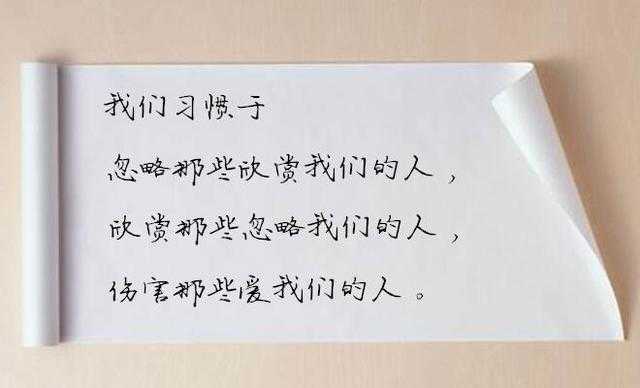 我们习惯于
忽略那些欣赏我们的人，
欣赏那些忽略我们的人，
伤害那些爱我们的人。